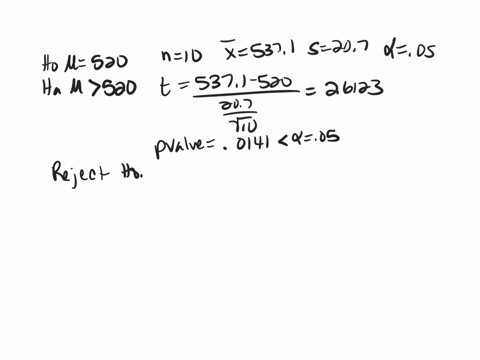 Ho µ=520 n=10 x̄=537.1 s=20.7 α=.05
Ha µ>520 t = 537.1-520 / (20.7/√10) = 2.6123
pvalue = .0141 < α=.05
Reject Ho.